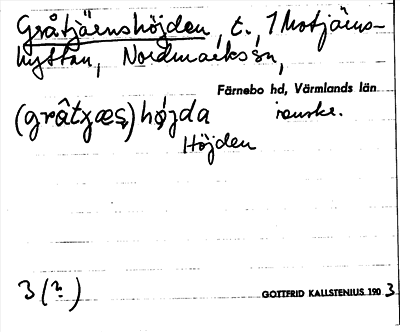 Gråtjäenshöjden, t., 1 Motjäins-
hyttan, Nordmarks sn,
Färnebo hd, Värmlands län
(grâtɟæs) højda
Höjden
3 (?)
GOTTFRID KALLSTENIUS 1903